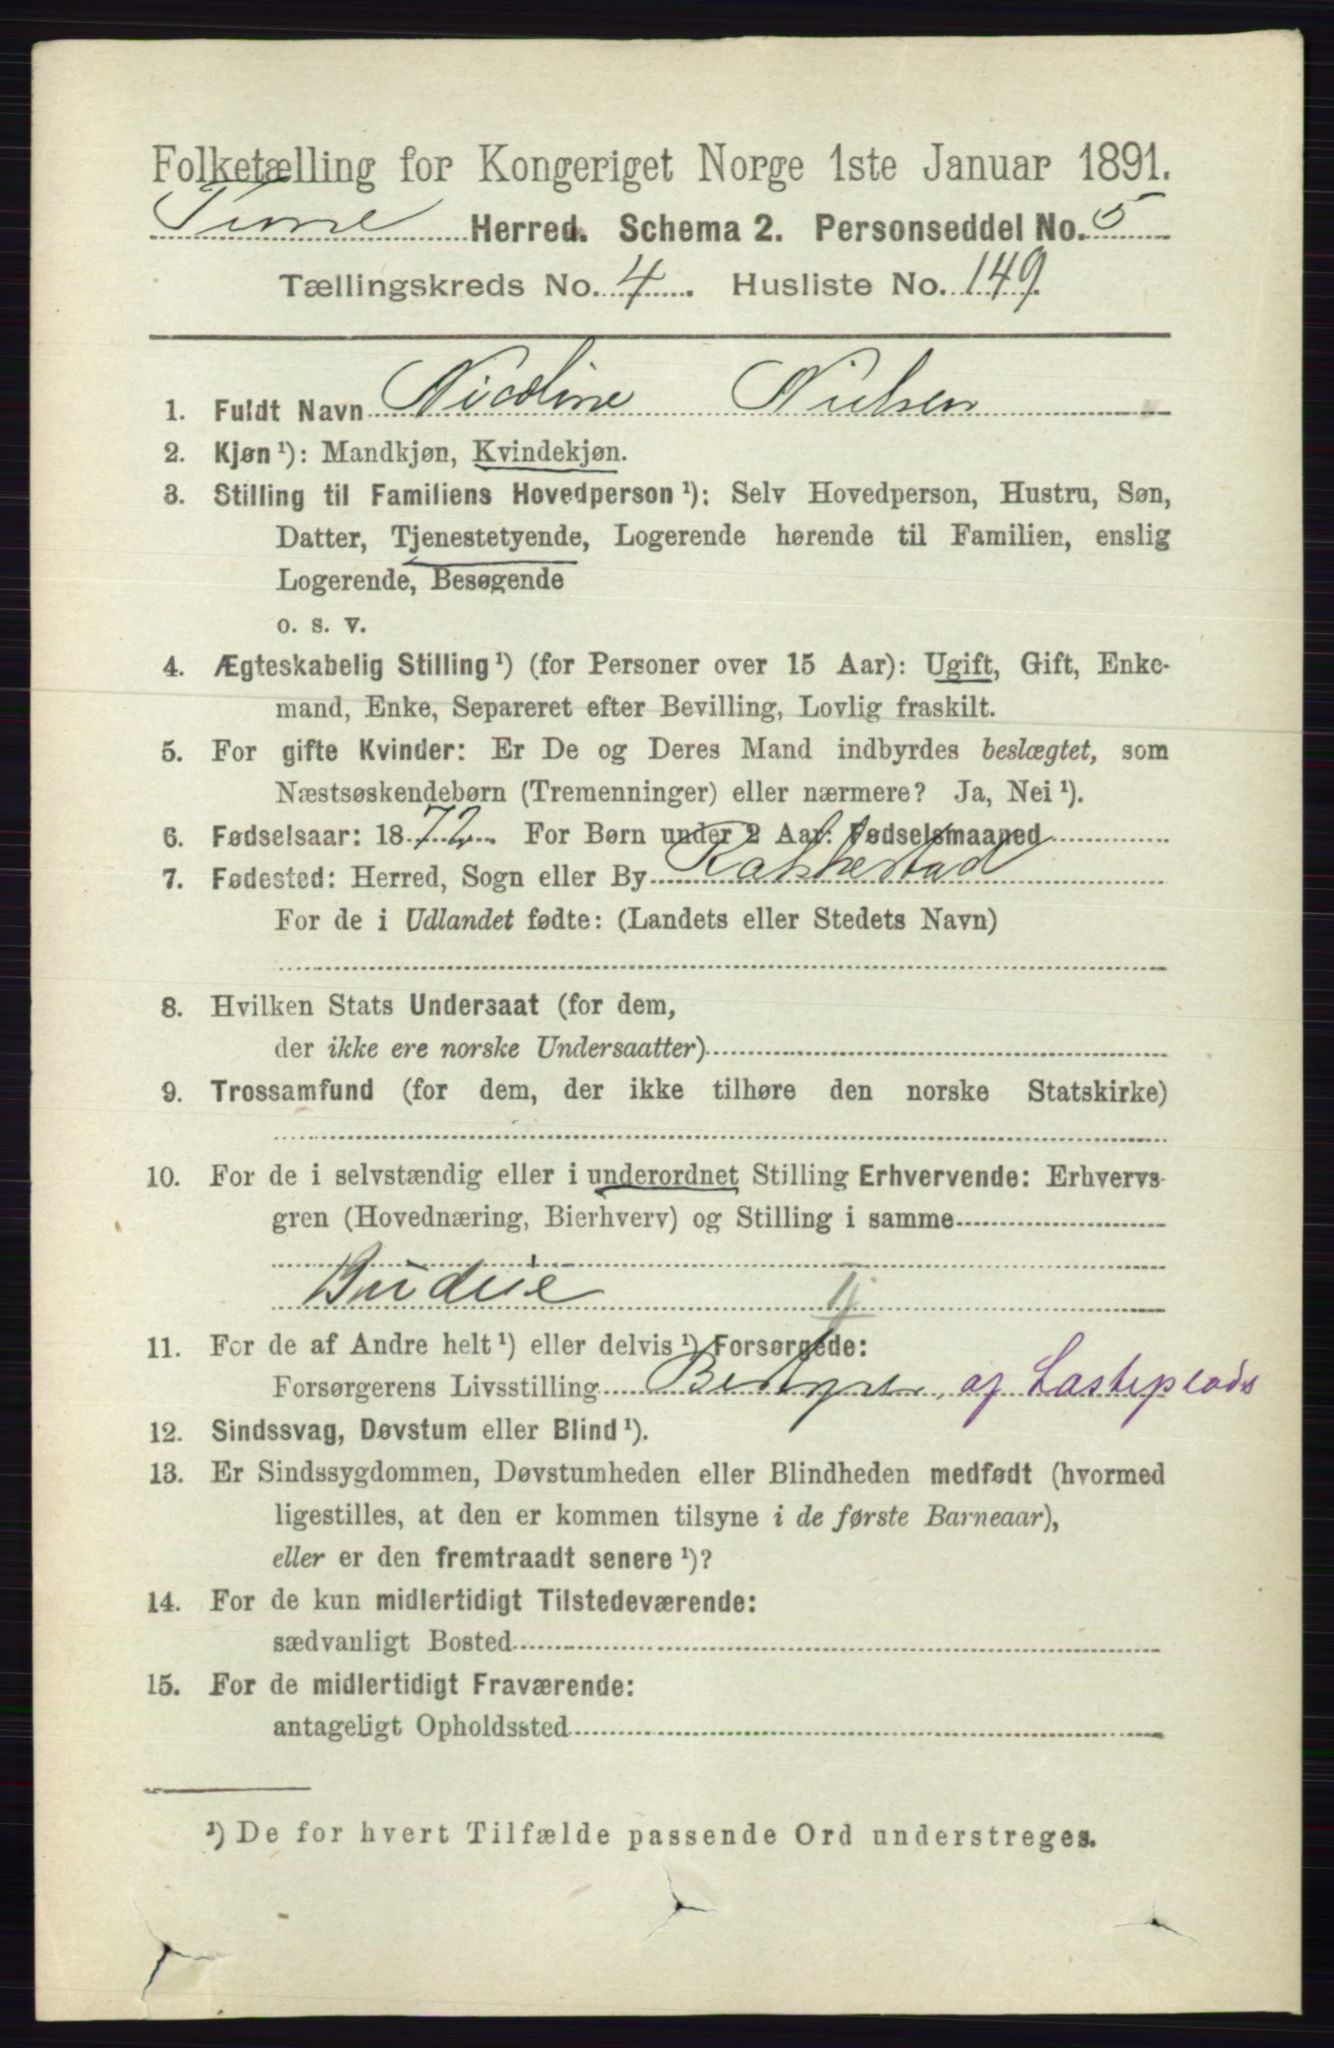 Folketælling for Kongeriget Norge 1ste Januar 1891.
Tune Herred. Schema 2. Personseddel No. 5
Tællingskreds No. 4. Husliste No. 149.
1. Fuldt Navn Nicoline Nielsen
2. Kjøn¹): Mandkjøn, Kvindekjøn.
3. Stilling til Familiens Hovedperson¹): Selv Hovedperson, Hustru, Søn,
Datter, Tjenestetyende, Logerende hørende til Familien, enslig
Logerende, Besøgende
o. s. v.
4. Ægteskabelig Stilling¹) (for Personer over 15 Aar): Ugift, Gift, Enke-
mand, Enke, Separeret efter Bevilling, Lovlig fraskilt.
5. For gifte Kvinder: Er De og Deres Mand indbyrdes beslægtet, som
Næstsøskendebørn (Tremenninger) eller nærmere? Ja, Nei¹).
6. Fødselsaar: 1872. For Børn under 2 Aar: Fødselsmaaned
7. Fødested: Herred, Sogn eller By Rakkestad
For de i Udlandet fødte: (Landets eller Stedets Navn)
8. Hvilken Stats Undersaat (for dem,
der ikke ere norske Undersaatter)
9. Trossamfund (for dem, der ikke tilhøre den norske Statskirke)
10. For de i selvstændig eller i underordnet Stilling Erhvervende: Erhvervs-
gren (Hovednæring, Bierhverv) og Stilling i samme
Budeie
11. For de af Andre helt¹) eller delvis¹) Forsørgede:
Forsørgerens Livsstilling Bestyrer, af Lasteplads
12. Sindssvag, Døvstum eller Blind¹).
13. Er Sindssygdommen, Døvstumheden eller Blindheden medfødt (hvormed
ligestilles, at den er kommen tilsyne i de første Barneaar),
eller er den fremtraadt senere¹)?
14. For de kun midlertidigt Tilstedeværende:
sædvanligt Bosted
15. For de midlertidigt Fraværende:
antageligt Opholdssted
¹) De for hvert Tilfælde passende Ord understreges.